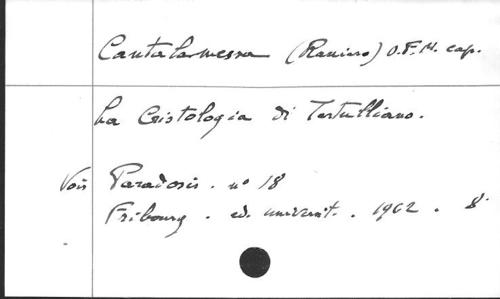 Cantalamessa (Raniero) O.F.M. cap.
La Cristologia di Tertulliano.
Voir Paradosis. nº 18
Fribourg. ed. universit.. 1962. 8º